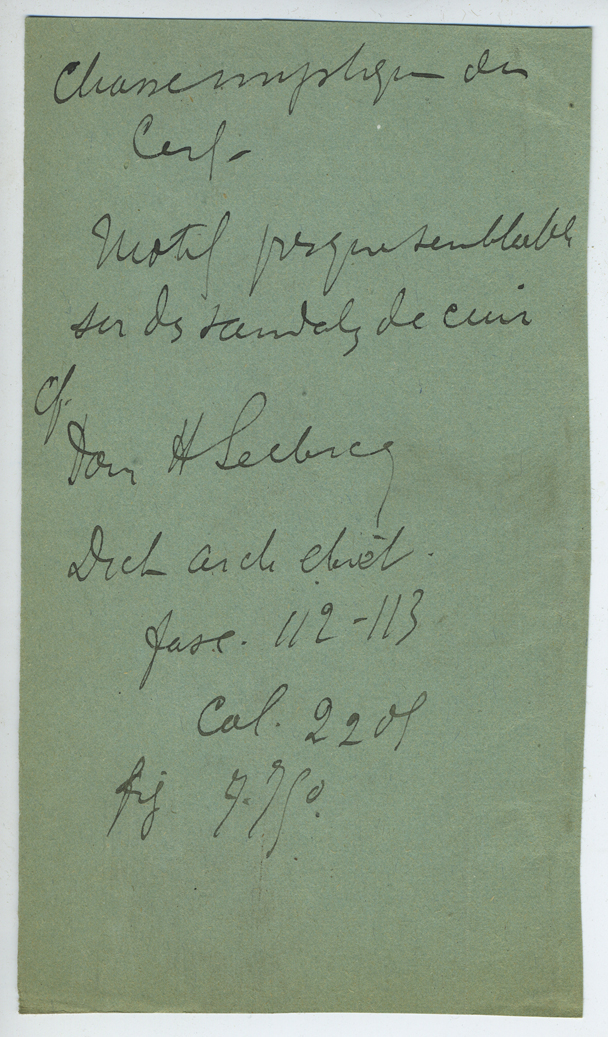 Chasse mystique du
Cerf -
Motif presque semblable
sur des sandales de cuir
cf.
Dom H Leclercq
Dict arch chrét.
fasc. 112-113
Col. 220
fig 7.750